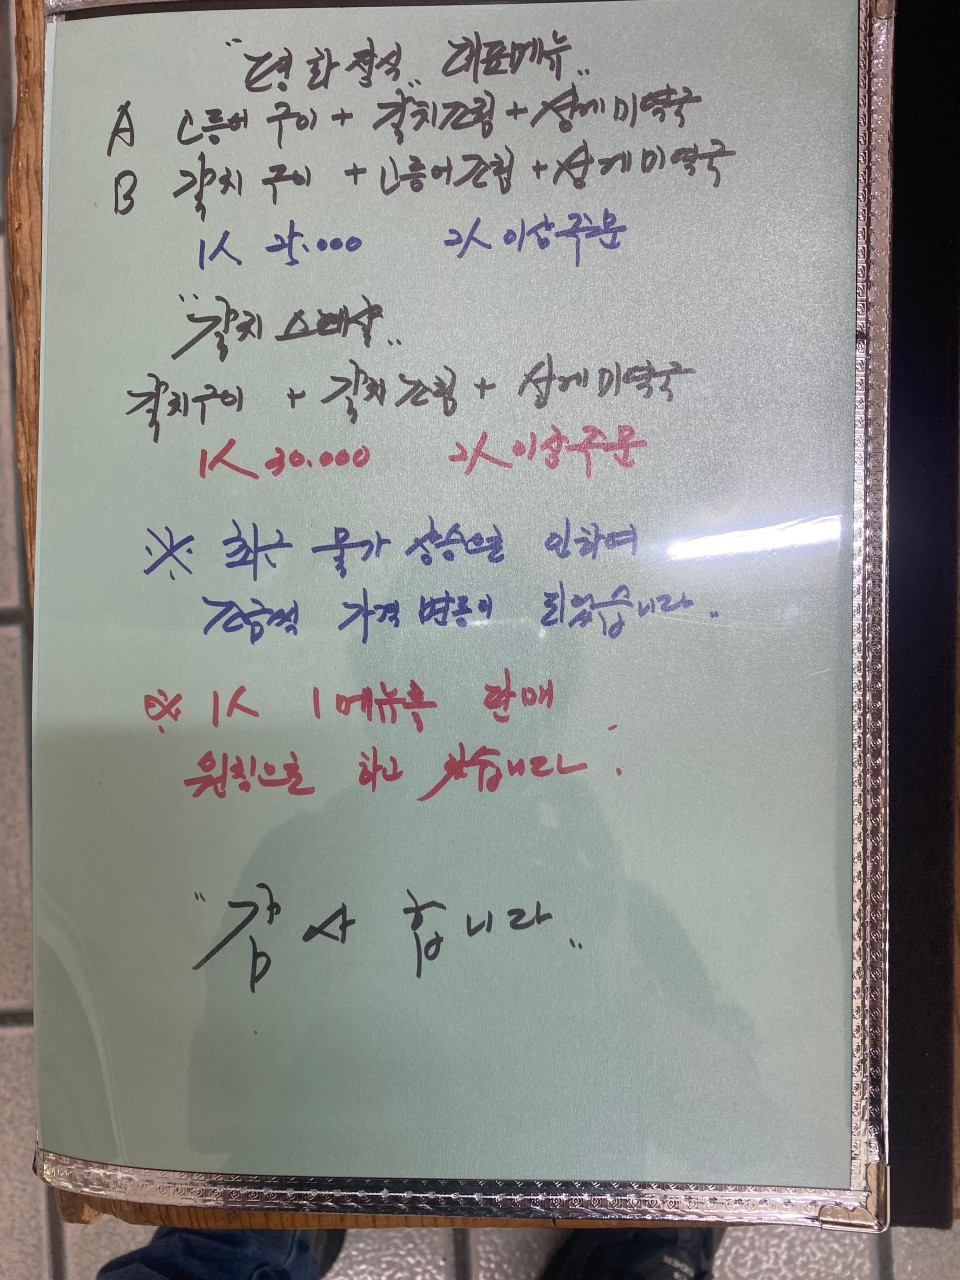 "평화 잘식" 대표메뉴"
A 고등어 구이 + 갈치조림 + 성게미역국
B 갈치 구이 + 고등어조림 + 성게미역국
1人 25.000 2人이상주문
"갈치 스페샬"
갈치구이 + 갈치조림 + 성게미역국
1人 30.000 2人이상주문
※ 최근 물가 상승으로 인하여
조금씩 가격 변동이 되었습니다"
※ 1人 1메뉴를 판매
원칙으로 하고 있습니다.
"감사합니다"